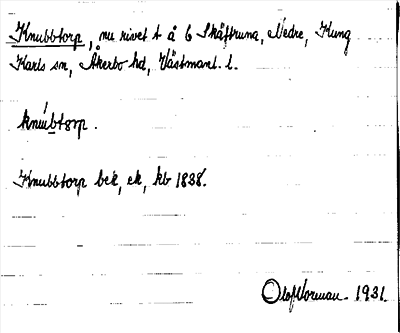 Knubbtorp, nu rivet t å 6 Skäftruna, Nedre, Kung
Karls sn, Åkerbo hd, Västmanl. l.
knúbtorp.
Knubbtorp bek, ek, kb 1838.
Olof Norman. 1931.